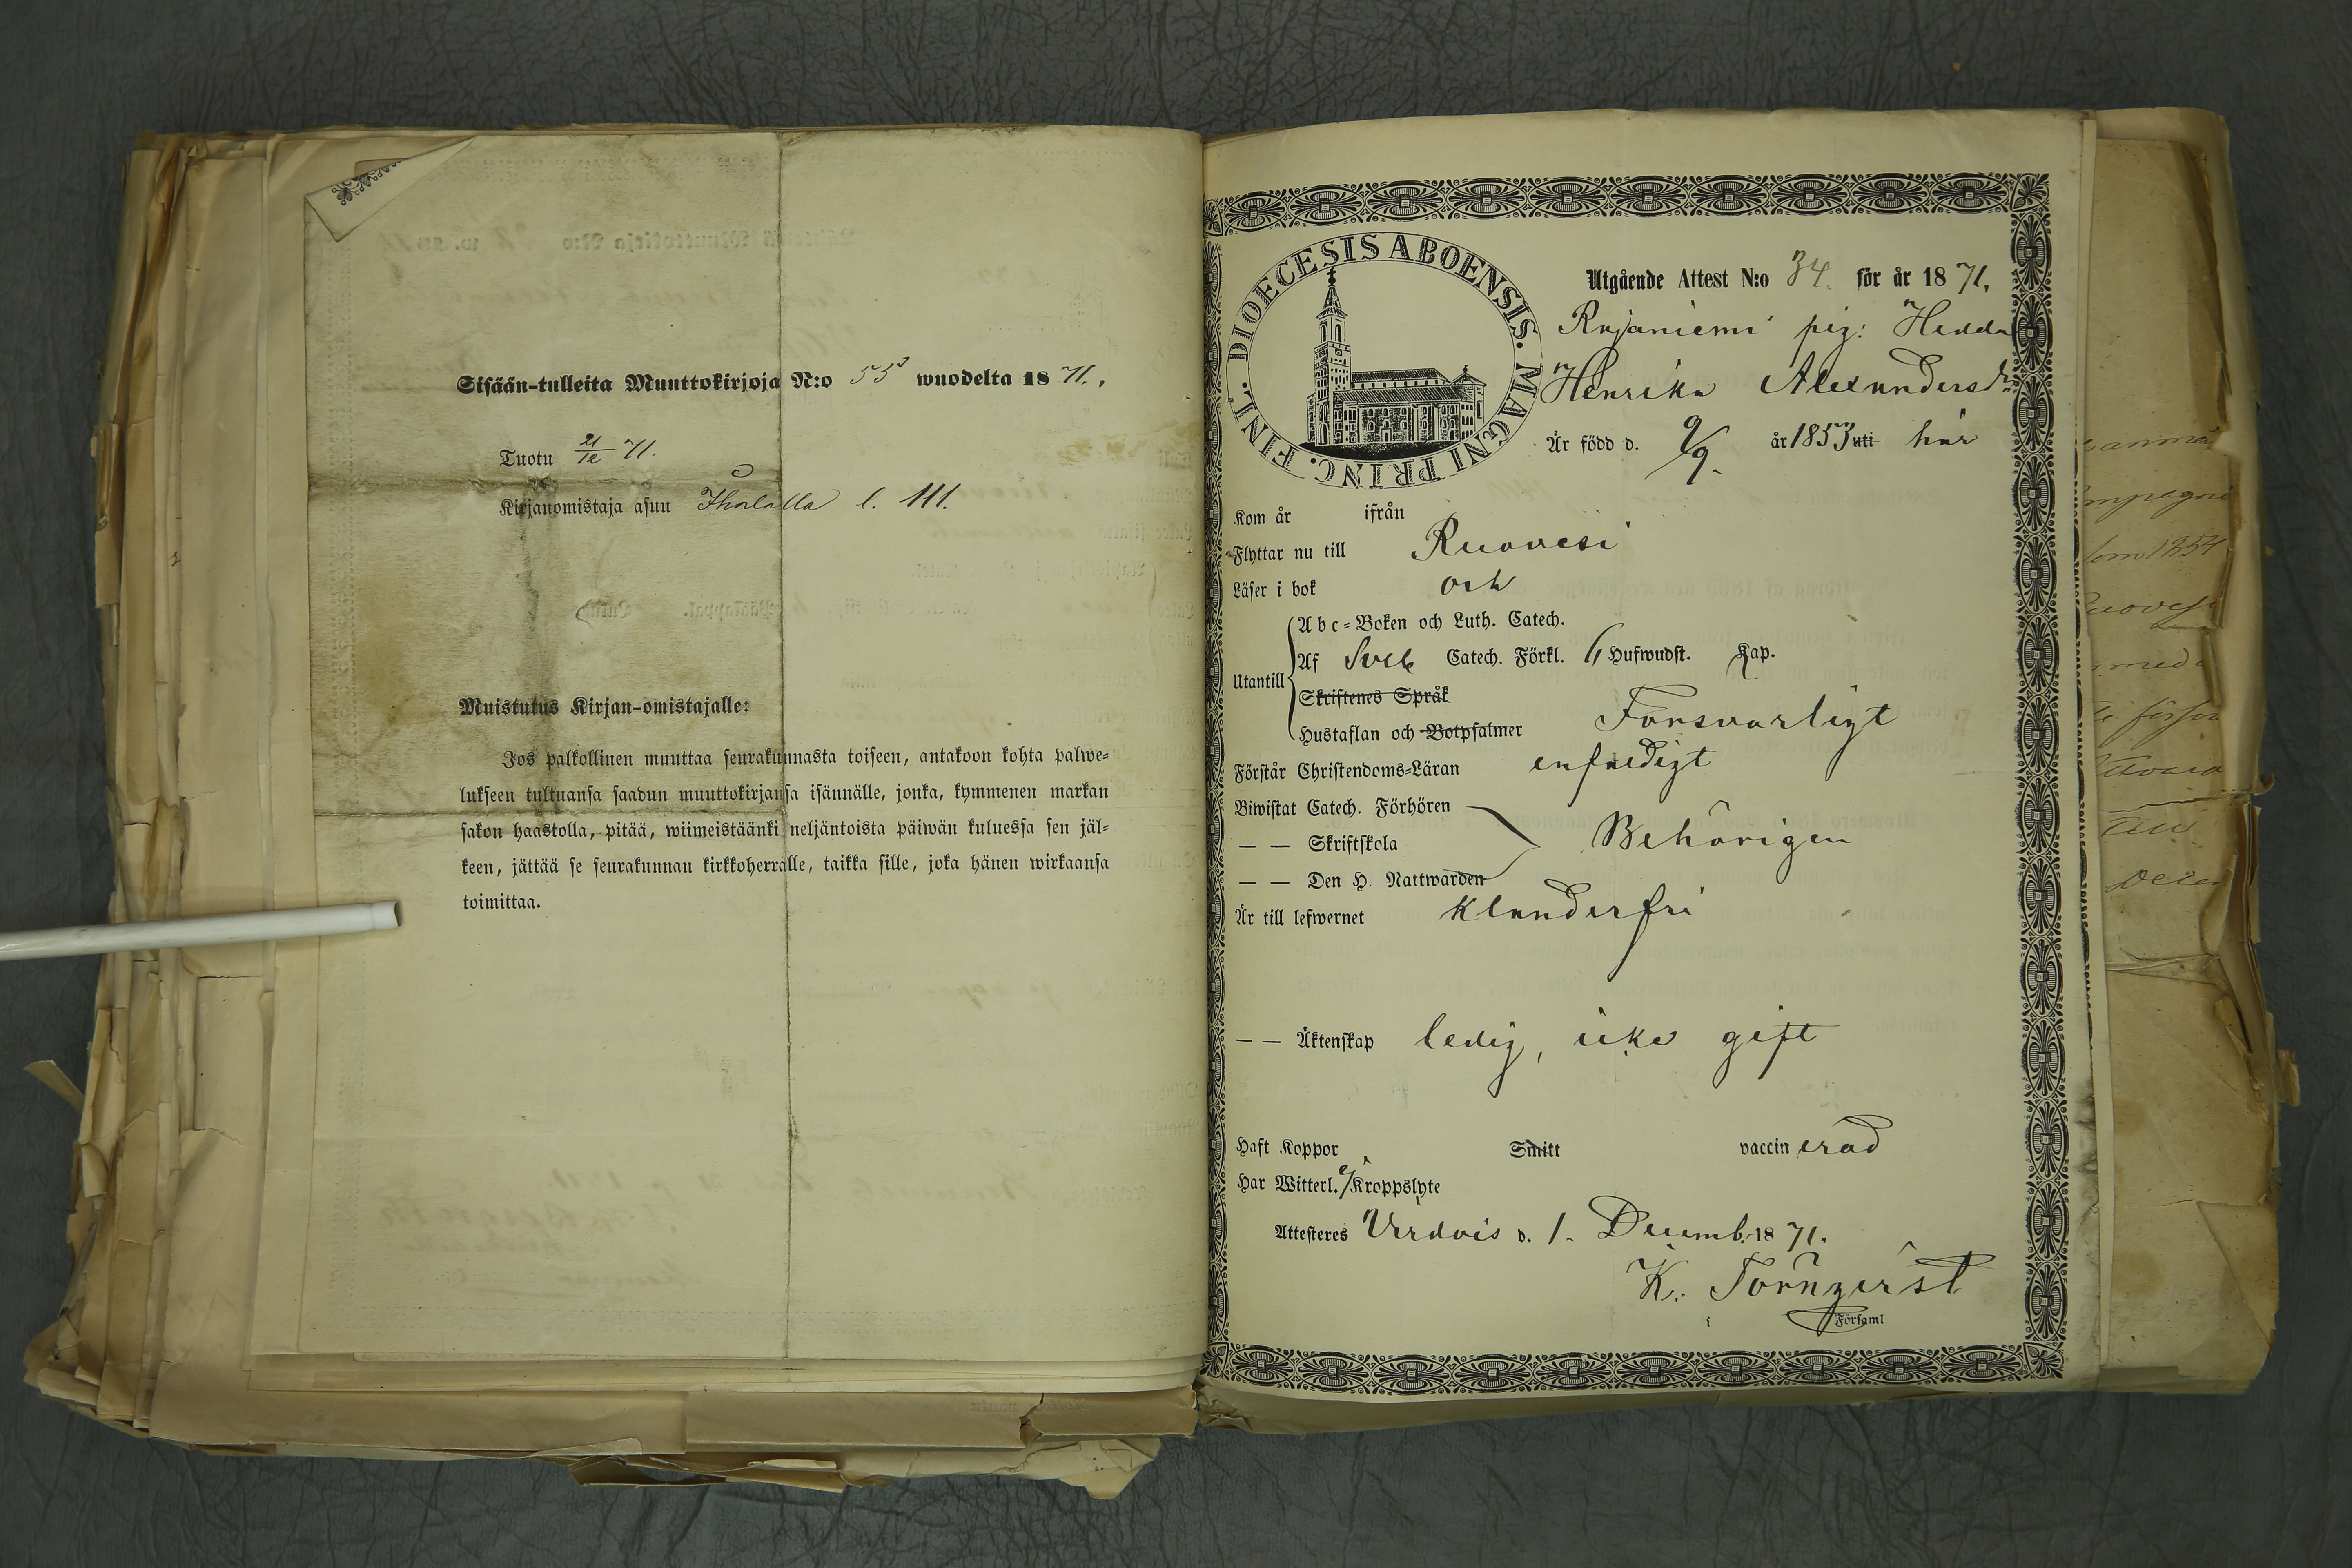 Sisään-tulleita Muuttokirjoja N:o 55 wuodelta 1871.
Tuotu 21/12 71.
Kirjanomistaja asuu Iholalla l. 111.
Muistutus Kirjan-omistajalle:
Jos palkollinen muuttaa seurakunnasta toiseen, antakoon kohta palwe-
lukseen tultuansa saadun muuttokirjansa isännälle, jonka, kymmenen markan
sakon haastolla, pitää, wiimeistäänki neljäntoista päiwän kuluessa sen jäl-
keen, jättää se seurakunnan kirkkoherralle, taikka sille, joka hänen wirkaansa
toimittaa.
DIOECESIS ABOENSIS. MAGNI PRINC. FINL.
Utgående Attest N:o 34 för år 1871.
Rajaniemi pig: Hedda
Henrika Alexandersdr
Är född d. 9/9. år 1853 uti här
Kom år ifrån
Flyttar nu till Ruovesi
Läser i bok och
Utantill
Abc-Boken och Luth. Catech.
Af Sveb Catech. Förkl. 6 Hufwudst. Kap.
Skriftenes Språk
Hustaflan och Botpsalmer Försvarligt
Förstår Christendoms-Läran enfaldigt
Biwistat Catech. Förhören
— — Skriftskola Behörigen
— — Den H. Nattwarden
Är till lefwernet klanderfri
— — Äktenskap ledig, icke gift
Haft Koppor Smitt vaccinerad
Har Witterl. ej Kroppslyte
Attesteres Virdois d. 1. Decemb. 1871.
K. Törnqvist
i Församl